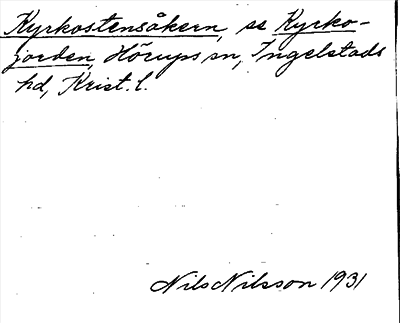 Kyrkostensåkern, se Kyrko-
jorden, Hörups sn, Ingelstads
hd, Krist. l.
Nils Nilsson 1931